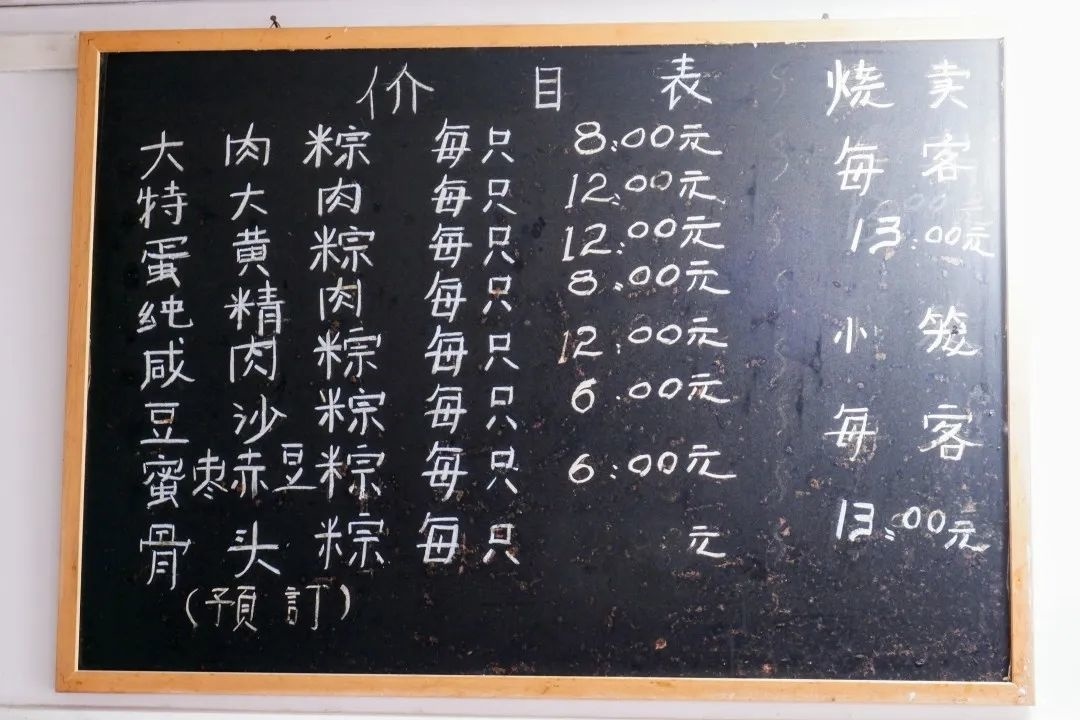 价目表
大肉粽 每只 8.00元
特大肉 每只 12.00元
蛋黄粽 每只 12.00元
纯精肉 每只 8.00元
咸肉粽 每只 12.00元
豆沙粽 每只 6.00元
蜜枣赤豆粽 每只 6.00元
骨头粽 每只 元
(預訂)
烧卖
每客
13.00元
小笼
每客
13.00元